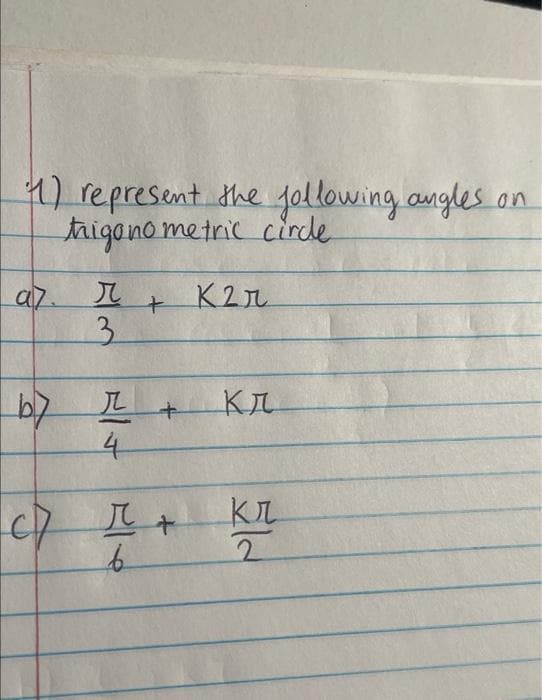 1) represent the following angles on
trigonometric circle
a). π/3 + K2π
b) π/4 + Kπ
c) π/6 + Kπ/2